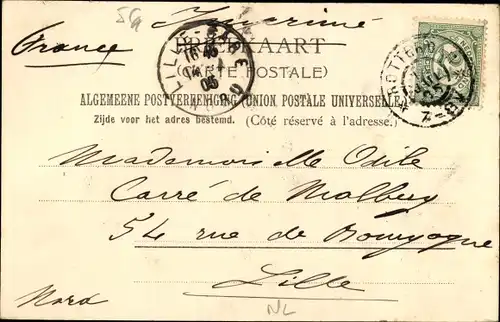 59
Imprimé
France
BRIEFKAART
(CARTE POSTALE)
ALGEMEENE POSTVEREENIGING (UNION POSTALE UNIVERSELLE)
Zijde voor het adres bestemd. (Côté réservé à l'adresse.)
LILLE-GARE
16 45
05
ROTTERDAM
7-8V
Mademoiselle Odile
Carré de Malberg
54 rue de Bourgogne
Lille
Nord
NL